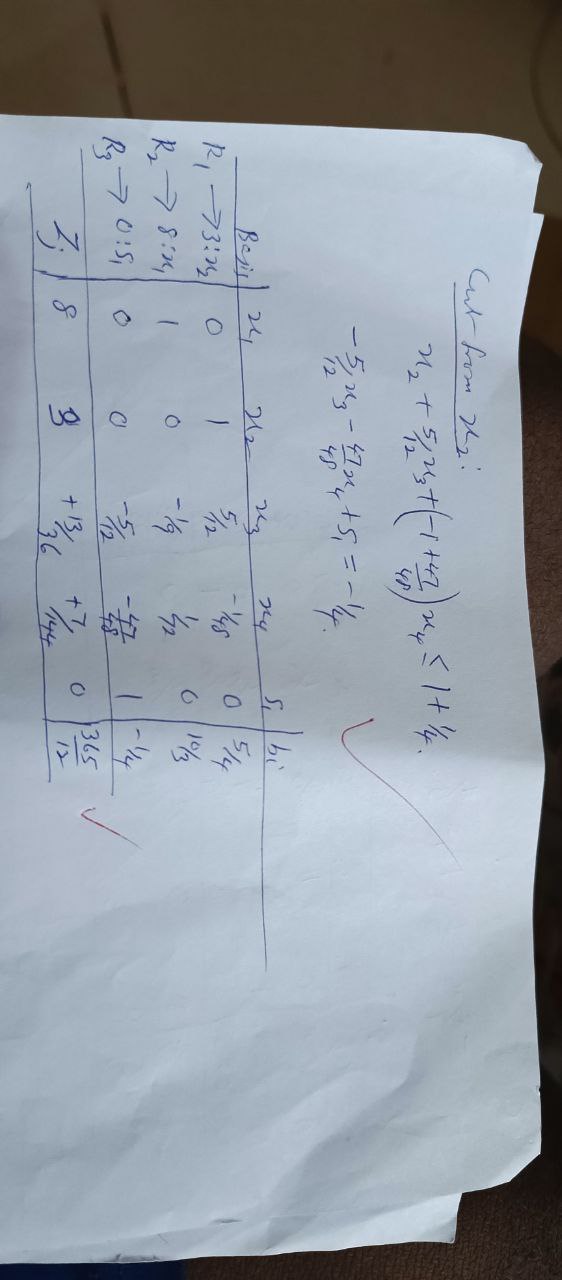 Cut from x₂:
x₂ + 5/12 x₃ + (-1 + 47/48) x₄ ≤ 1 + 1/4.
-5/12 x₃ - 47/48 x₄ + S₁ = -1/4.
Basis x₁ x₂ x₃ x₄ S₁ bi
R₁ → 3:x₂ 0 1 5/12 -1/48 0 5/4
R₂ → 8:x₁ 1 0 -1/9 1/72 0 10/3
R₃ → 0:S₁ 0 0 -5/12 -47/48 1 -1/4
Zj 8 3 +13/36 +7/144 0 365/12